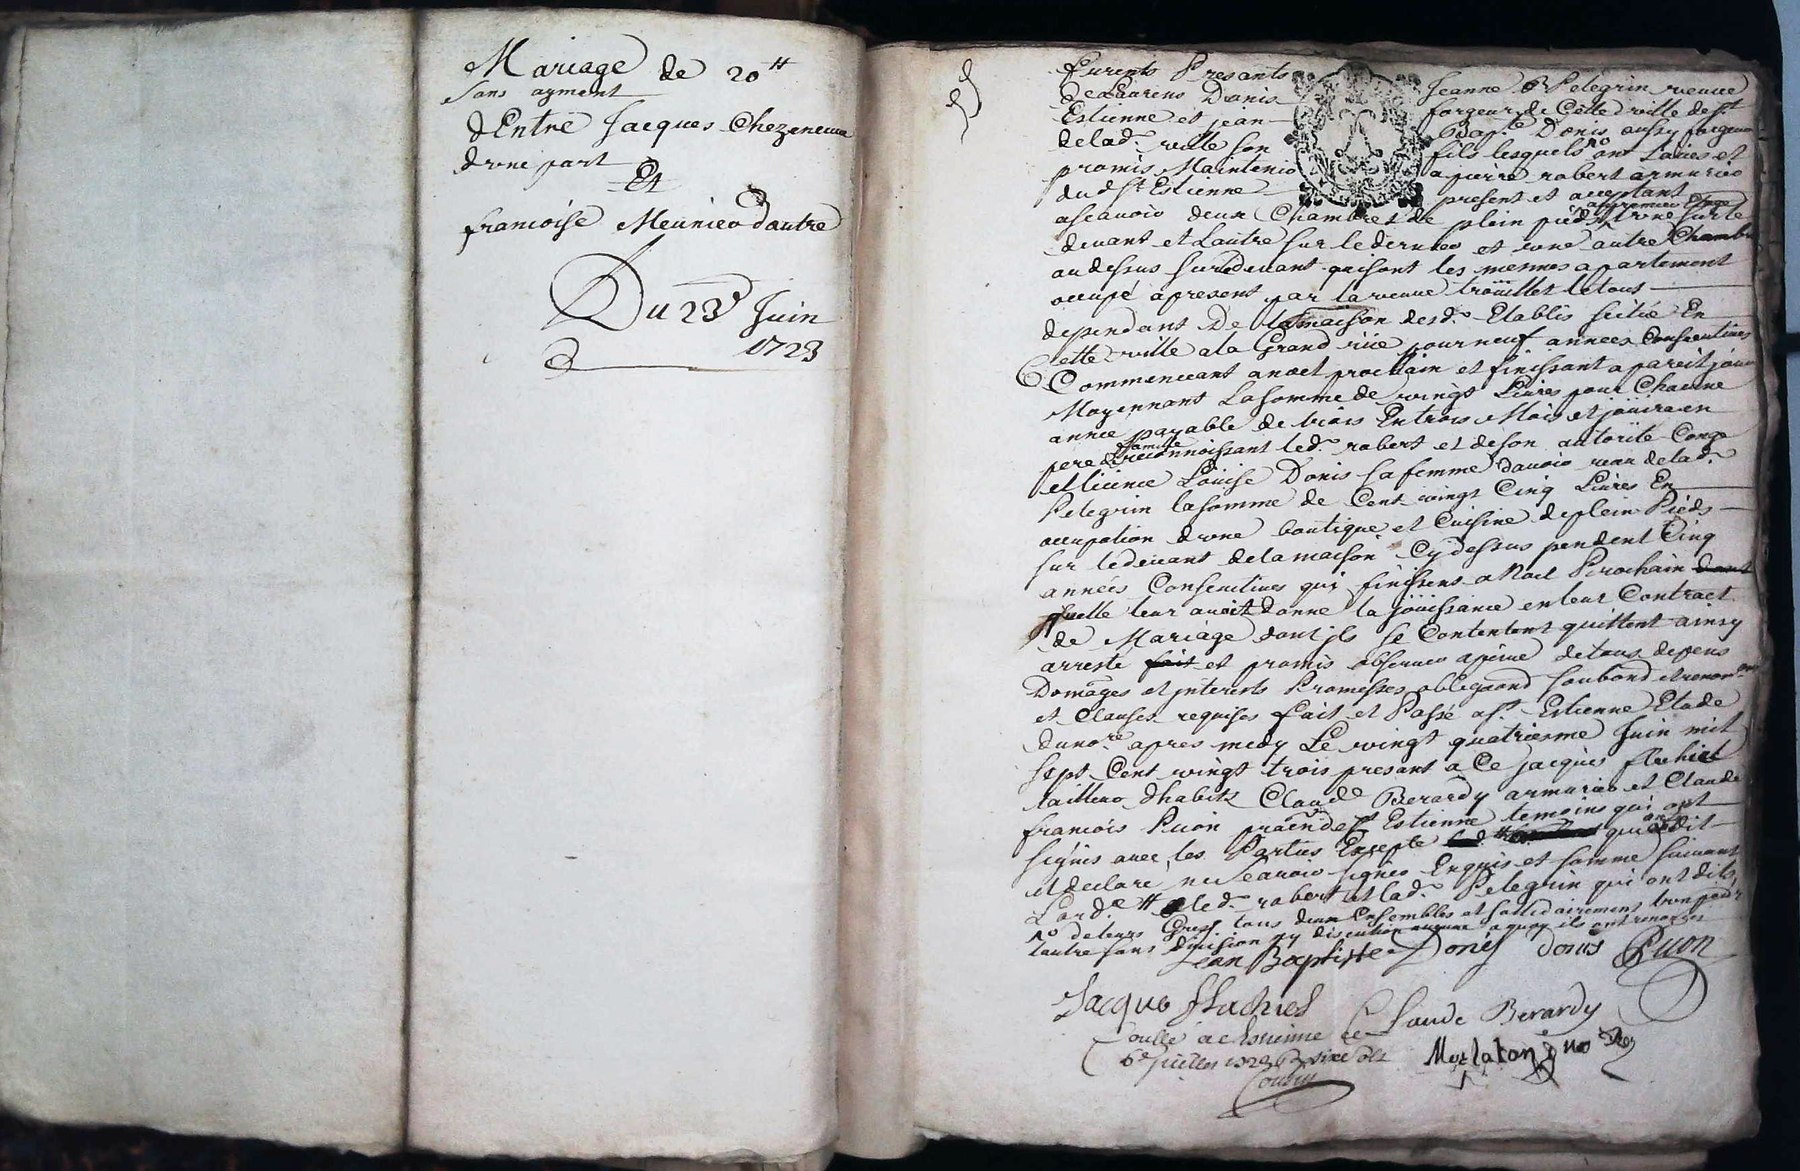 Mariage de 20tt
Sans agment
d'Entre Jacques Chezeneuve
d'vne part
Et
francoise Meunier d'autre
Du 23e Juin
1723
furents Presants Jeanne Pelegrin veuve
de Laurens Donis forgeur de Cette ville de St
Estienne et jean Bap.te Donis aussy forgeur
de lad. ville son fils lesquels ont
promis Maintenir a pierre robert armurier
du d. St Estienne present et acceptant
ascavoir deux Chambres de plein pied au premier Estage l'vne sur le
devant et L'autre sur le dernier et vne autre Chambre
au dessus sur ledevant qui sont les mesmes apartement
occupé apresent par la veuve trouillet le tous
dependant De la maison desd. Etablis scitié En
Cette ville a la Grand rüe pour neuf années Consecutives
Commencant a noel prochain et finissant a pareit jour
Moyennant La somme de vingt Livres pour Chacune
année payable de trois En trois Mois et joüira en
pere de famille reconnoissant led. robert et de son autorité Conge
et licence Loüise Donis sa femme davoir venu de lad.
Pelegrin la somme de Cent vingt Cinq Livres En
occupation d'vne boutique et Cuisine de plein Pieds
sur le devant de la maison Cy dessus pendent Cinq
années Consecutives qui finissens a Noel Prochain dont
quelle leur avoit donne la joüissance en leur Contract
de Mariage dont ils se Contentent quittent ainsy
arresté fait et promis observer a peine de tous depens
Domages et jnterests Promesses obligaond soubond et renon.ons
et Clauses requises fait et Passé a St Estienne Etude
du no.re apres medy Le vingt quatriesme Juin mil
sept Cent vingt trois presant a Ce jacques flechiet
tailleur d'habits Claude Berardy armurier et Claude
francois Puon de St Estienne temoins qui ont
signés avec les Parties Excepte qui ont dit
et declaré ne Scavoir signer Enquis et somme suivant
L'ord.e tt led. robert et lad. Pelegrin qui ont dits
no de leurs tous deux Ensembles et sollidairement l'vn pour
l'autre sans division ny discution aucune a quoy ils ont renonces
Jean Baptiste Donis donis Puon
Jacque Claude Berardy
Conllé a St Estienne le
6e Juillet 1723